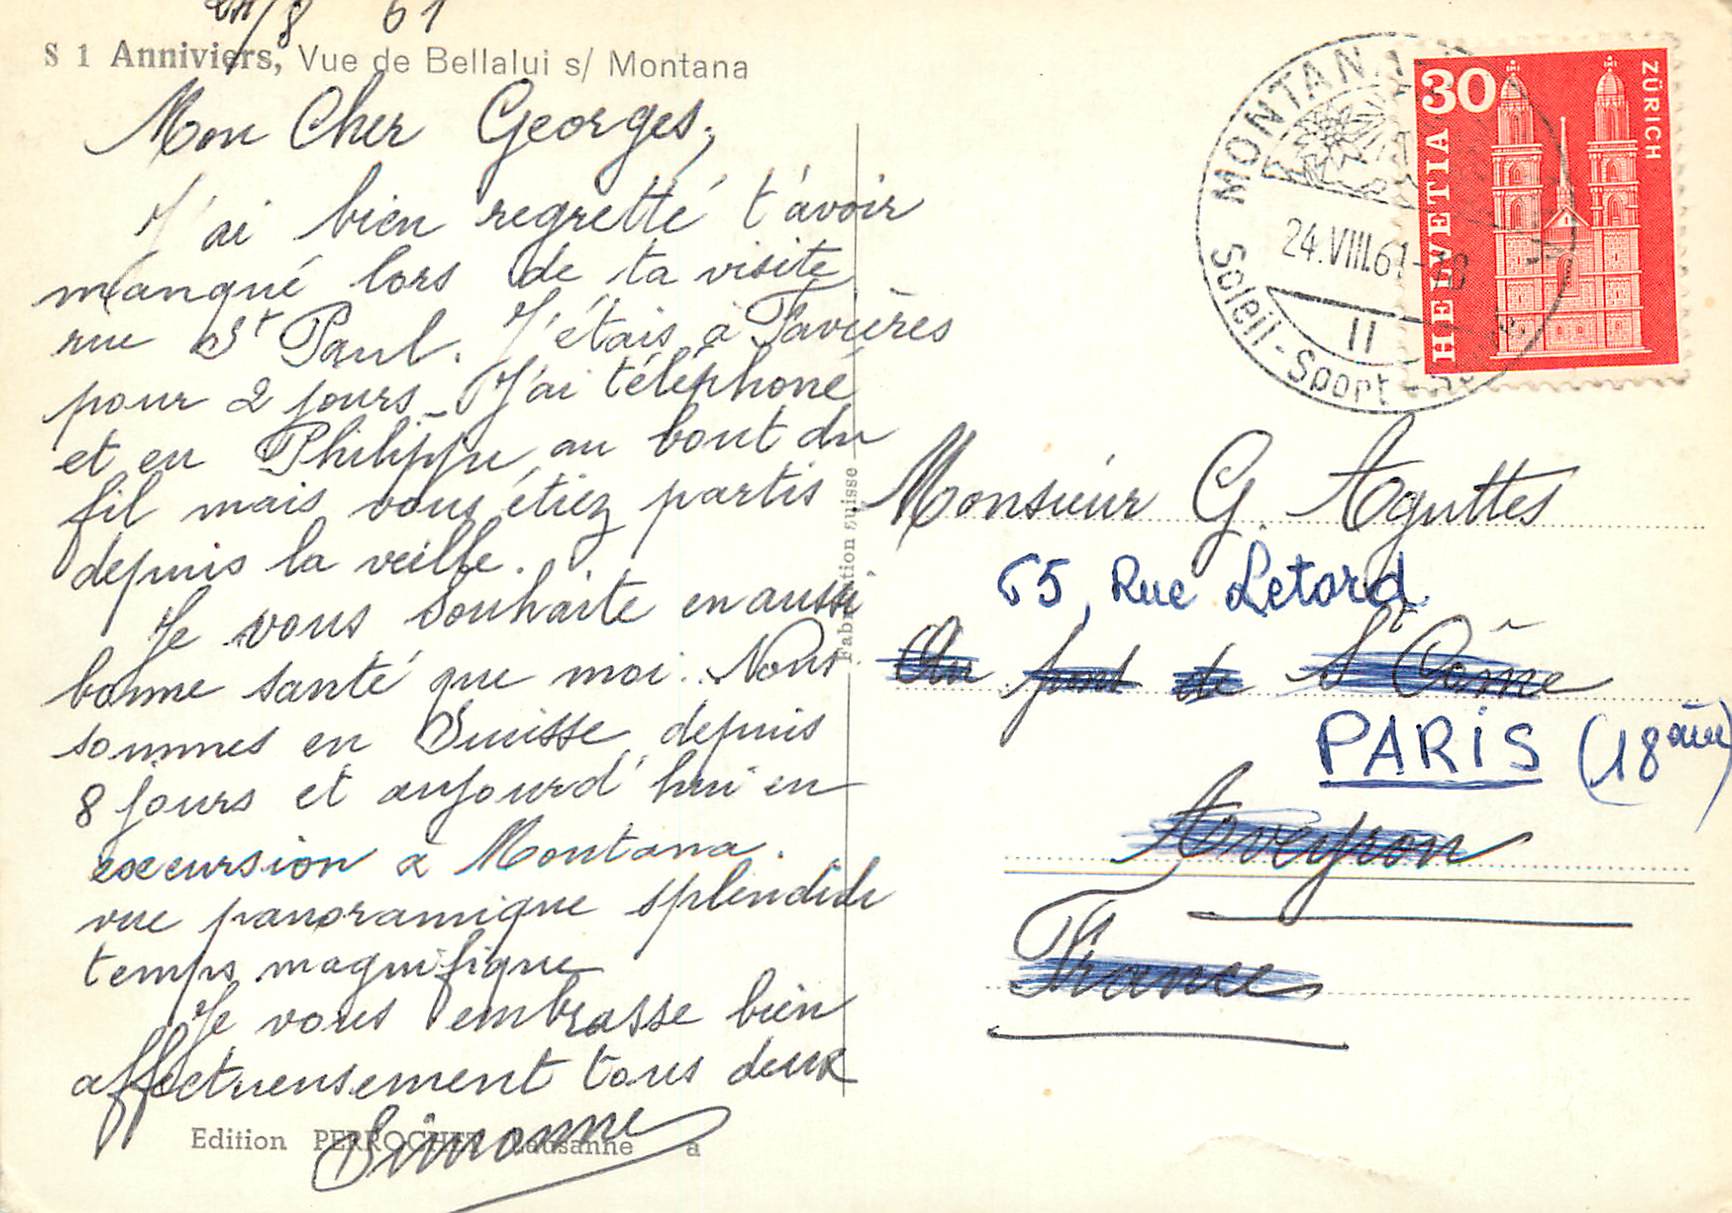 /8 61
S 1 Anniviers, Vue de Bellalui s/ Montana
Mon Cher Georges,
J'ai bien regretté t'avoir
manqué lors de ta visite
rue St Paul. J'étais à Favières
pour 2 jours_ J'ai téléphoné
et eu Philippe au bout du
fil mais vous étiez partis
depuis la veille.
Je vous souhaite en aussi
bonne santé que moi. Nous
sommes en Suisse depuis
8 jours et aujourd'hui en
excursion à Montana.
vue panoramique splendide
temps magnifique
Je vous embrasse bien
affectueusement tous deux
Simonne
Edition PERROCHET Lausanne a
Fabrication suisse
MONTANA
24.VIII.61-
II
Soleil - Sport -
30
HELVETIA
ZÜRICH
Monsieur G. Aguttes
65, Rue Letord
Au pont de St Côme
PARIS (18ème)
Aveyron
France